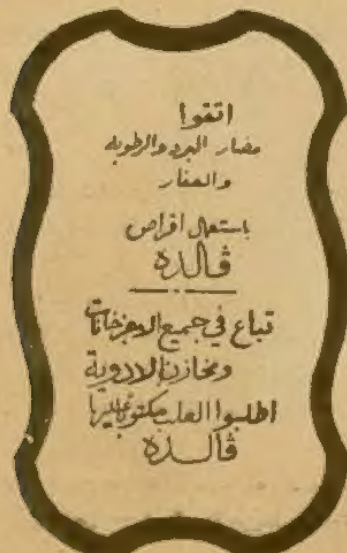 اتقوا
مضار البرد والرطوبه
والغبار
باستعمال اقراص
ڤالده
تباع في جميع الاجزخانات
ومخازن الادوية
اطلبوا العلب مكتوب عليها
ڤالده